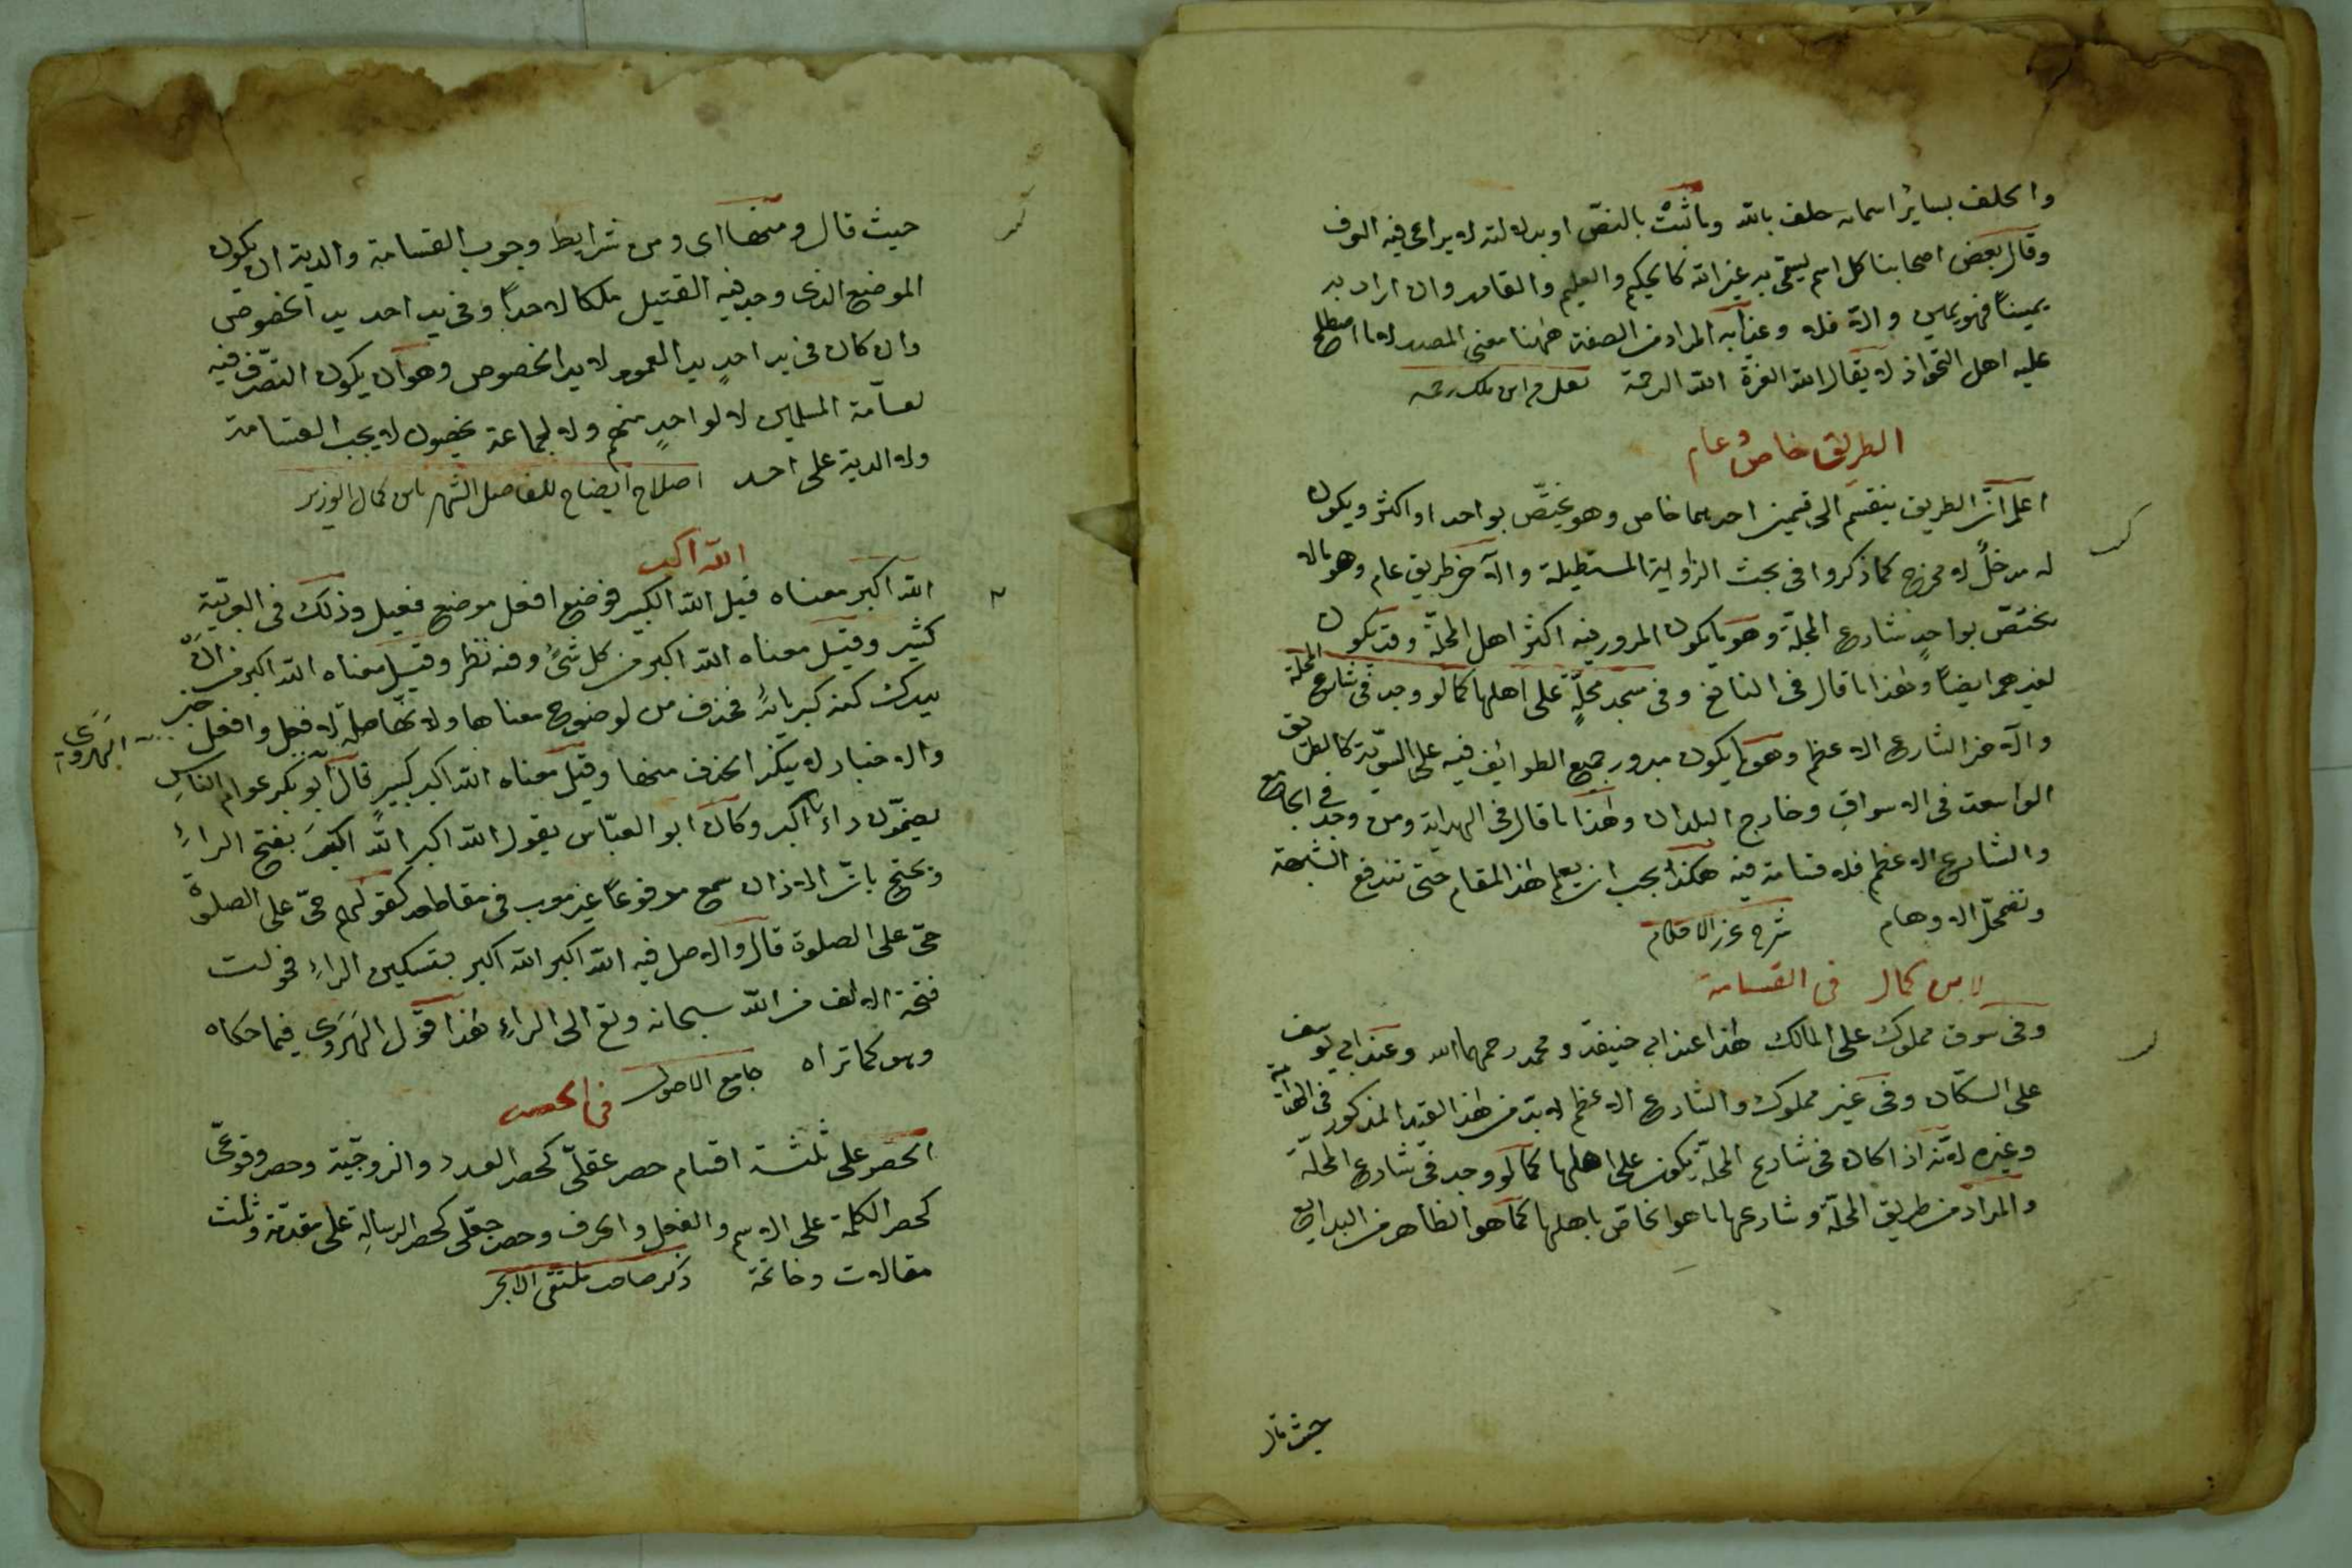 والحلف بسائر اسمائه حلف بالله وما ثبت بالنصّ او بدلالته لا يراعى فيه العرف
وقال بعض اصحابنا كل اسم يسمّى به غير الله كالحكيم والعليم والقادر وان اراد به
يمينًا فهو يمين والّا فلا وعزابه المراد من الصفة ههنا معنى المصدر لا ما اصطلح
عليه اهل النحو اذ لا يقال الله العزة الله الرحمة نقل من ابن ملك رحمه
الطريق خاص وعام
اعلم انّ الطريق ينقسم الى قسمين احدهما خاص وهو يختصّ بواحد او اكثر ويكون
له مدخلٌ لا مخرج كما ذكروا فى بحث الزايغة المستطيلة والآخر طريق عام وهو ما لا
يختصّ بواحدٍ شارع المحلة وهو ما يكون المرور فيه اكثر اهل المحلّة وقد يكون
لغيرهم ايضًا ولهذا ما قال فى النافع وفى مسجد محلّةٍ على اهلها كما لو وجد فى شارع المحلة
والآخر الشارع الاعظم وهو ما يكون مرور جميع الطوائف فيه على السويّة كالطريق
الواسعة فى الاسواق وخارج البلدان ولهذا ما قال فى الهداية ومن وجد فى الجامع
والشارع الاعظم فلا قسامة فيه هكذا يجب ان يعلم هذا المقام حتى تندفع الشبهة
وتضمحلّ الاوهام شرح غرر الاحكام
لابن كمال فى القسامة
وفى سوق مملوك على المالك هذا عند ابى حنيفة ومحمد رحمهما الله وعند ابى يوسف
على السكّان وفى غير مملوك والشارع الاعظم لا بدّ من هذا القيد المذكور فى الهداية
وغيره لانّه اذا كان فى شارع المحلّة يكون على اهلها كما لو وجد فى شارع المحلّة
والمراد من طريق المحلّة وشارعها ما هو الخاصّ باهلها كما هو الظاهر من البدايع
حيث قال
حيث قال ومنها اى ومن شرايط وجوب القسامة والدية ان يكون
الموضع الذى وجد فيه القتيل ملكا لاحدٍ او فى يد احد يد الخصوص
وان كان فى يد احدٍ يد العموم لا يد الخصوص وهو ان يكون التصرّف فيه
لعامّة المسلمين لا لواحدٍ منهم ولا لجماعة يحصون لا يجب القسامة
ولا الدية على احد اصلاح ايضاح للفاضل الشهير بابن كمال الوزير
الله اكبر
الله اكبر معناه قيل الله الكبير فوضع افعل موضع فعيل وذلك فى العربيّة
كثير وقيل معناه الله اكبر من كل شئٍ وفيه نظر وقيل معناه الله اكبر من ان
يدرك كنه كبريائه فحذف من لوضوح معناها ولانّها صلة لافعل وافعل خبر
والاخبار لا ينكر الحذف منها وقيل معناه الله اكبر كبيرٍ قال ابو بكر عوام الناس
يضمّون راء اكبر وكان ابو العبّاس يقول الله اكبر الله اكبر بفتح الراء
ويحتج بانّ الاذان سمع موقوفًا غير معرب فى مقاطعه كقولهم حىّ على الصلوة
حىّ على الصلوة قال والاصل فيه الله اكبر الله اكبر بتسكين الراء فحولت
فتحة الالف من الله سبحانه وتع الى الراء هذا قول الهروى فيما حكاه
وهو كما تراه جامع الاصول
الهروى
فى الحصر
الحصر على ثلثة اقسام حصر عقلىّ كحصر العدد والزوجيّة وحصر وقوعىّ
كحصر الكلمة على الاسم والفعل والحرف وحصر جعلى كحصر الرسالة على مقدّمة وثلث
مقالات وخاتمة ذكر صاحب ملتقى الابحر